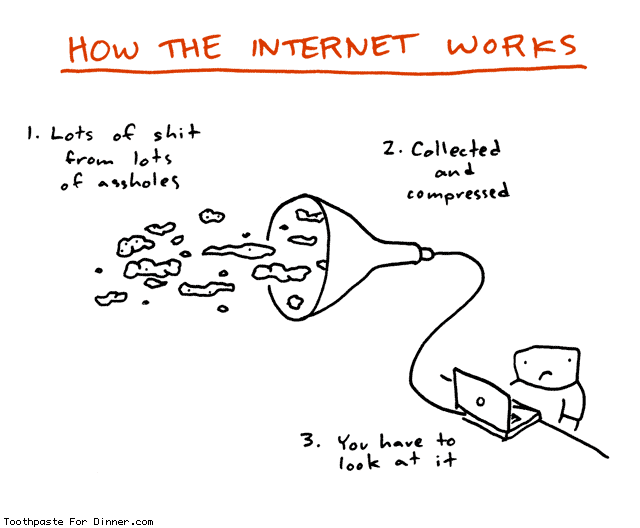 HOW THE INTERNET WORKS
1. Lots of shit
from lots
of assholes
2. Collected
and
compressed
3. You have to
look at it
Toothpaste For Dinner.com